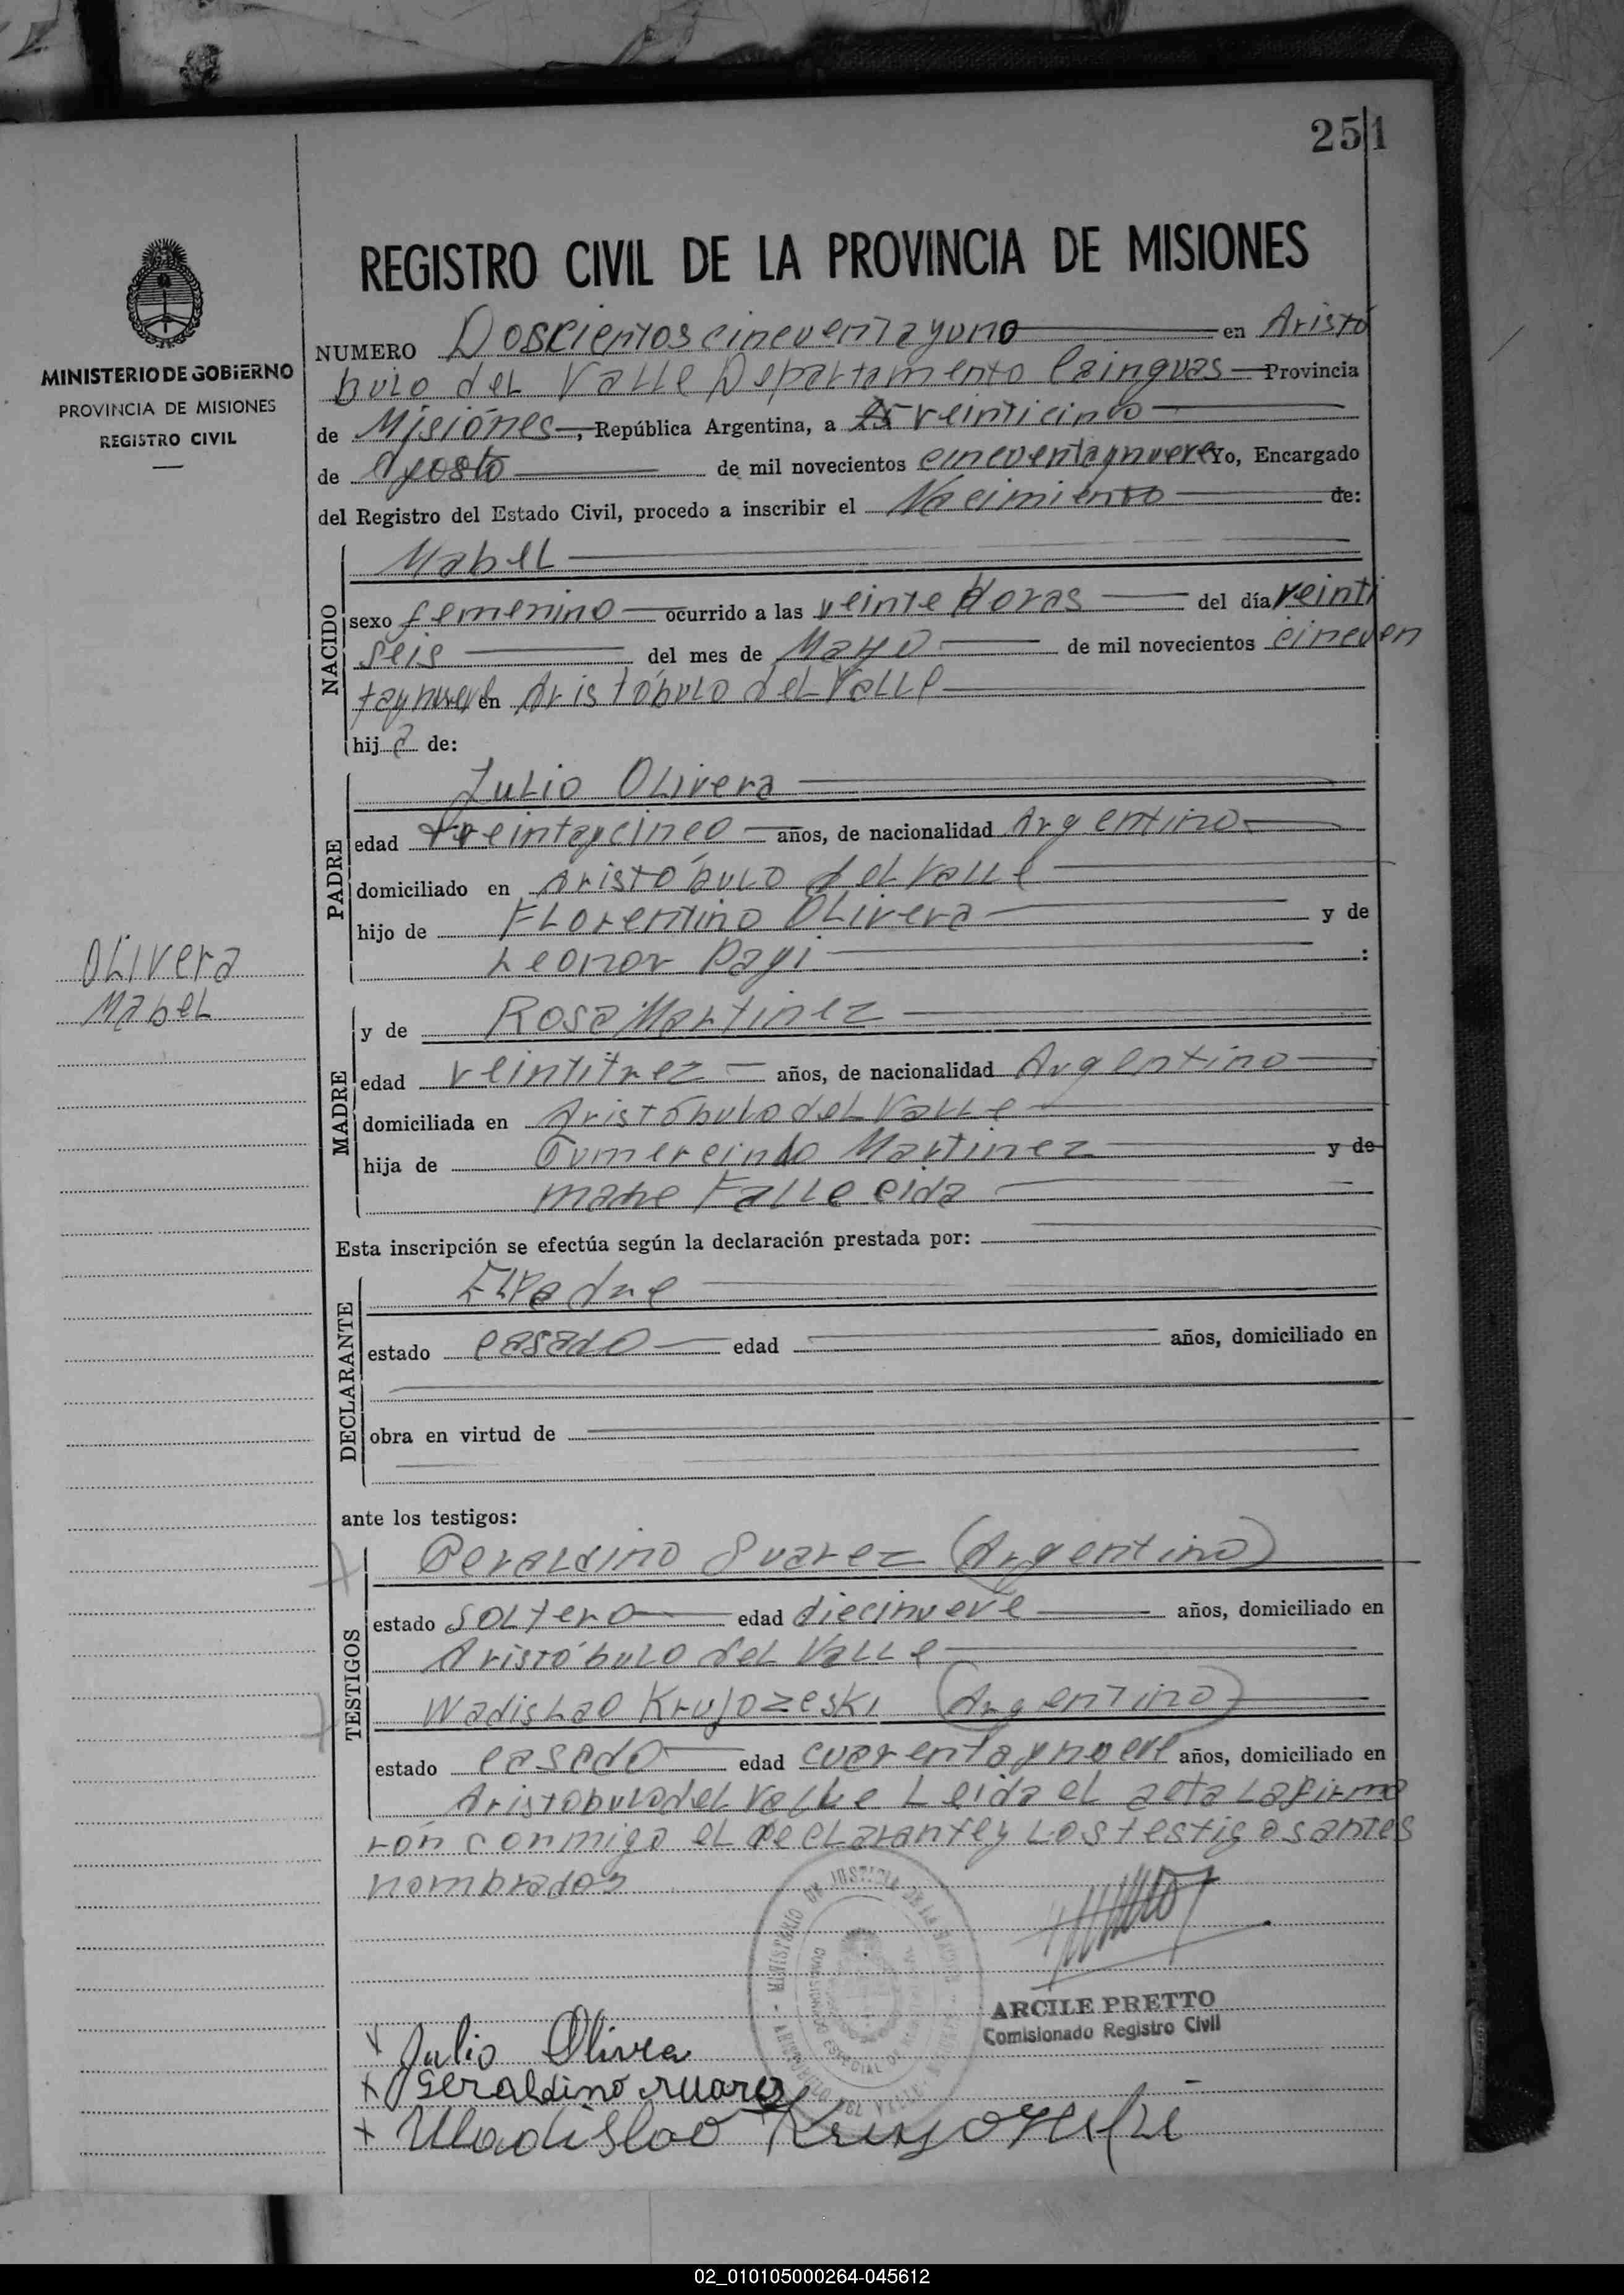 251
REGISTRO CIVIL DE LA PROVINCIA DE MISIONES
MINISTERIO DE GOBIERNO
PROVINCIA DE MISIONES
REGISTRO CIVIL
NUMERO Doscientos cincuentayuno en Aristo
bulo del Valle Departamento Cainguas Provincia
de Misiónes, República Argentina, a veinticinco
de Agosto de mil novecientos cincuentaynueve Yo, Encargado
del Registro del Estado Civil, procedo a inscribir el Nacimiento de:
NACIDO
Mabel
sexo femenino ocurrido a las veinte Horas del día veinti
seis del mes de Mayo de mil novecientos cincuen
taynueve en Aristóbulo del Valle
hija de:
PADRE
Julio Olivera
edad treintaycinco años, de nacionalidad Argentino
domiciliado en Aristóbulo del Valle
hijo de Florentino Olivera y de
Leonor Dayi :
Olivera
Mabel
MADRE
y de Rosa Martinez
edad veintitrez años, de nacionalidad Argentino
domiciliada en Aristóbulo del Valle
hija de Gumercindo Martinez y de
madre Fallecida
Esta inscripción se efectúa según la declaración prestada por:
DECLARANTE
El Padre
estado casado edad años, domiciliado en
obra en virtud de
ante los testigos:
TESTIGOS
Geraldino Suarez (Argentino)
estado Soltero edad diecinueve años, domiciliado en
Aristóbulo del Valle
Wadislao Krujozeski (Argentino)
estado casado edad cuarentaynueve años, domiciliado en
Aristobulo del Valle Leida el acta la firma
rón conmigo el declarante y los testigos antes
nombrados
MINISTERIO DE JUSTICIA DE LA
ARISTOBULO DEL VALLE
ARCILE PRETTO
Comisionado Registro Civil
x Julio Olivra
x Geraldino suarez
x Uladislao
02_010105000264-045612